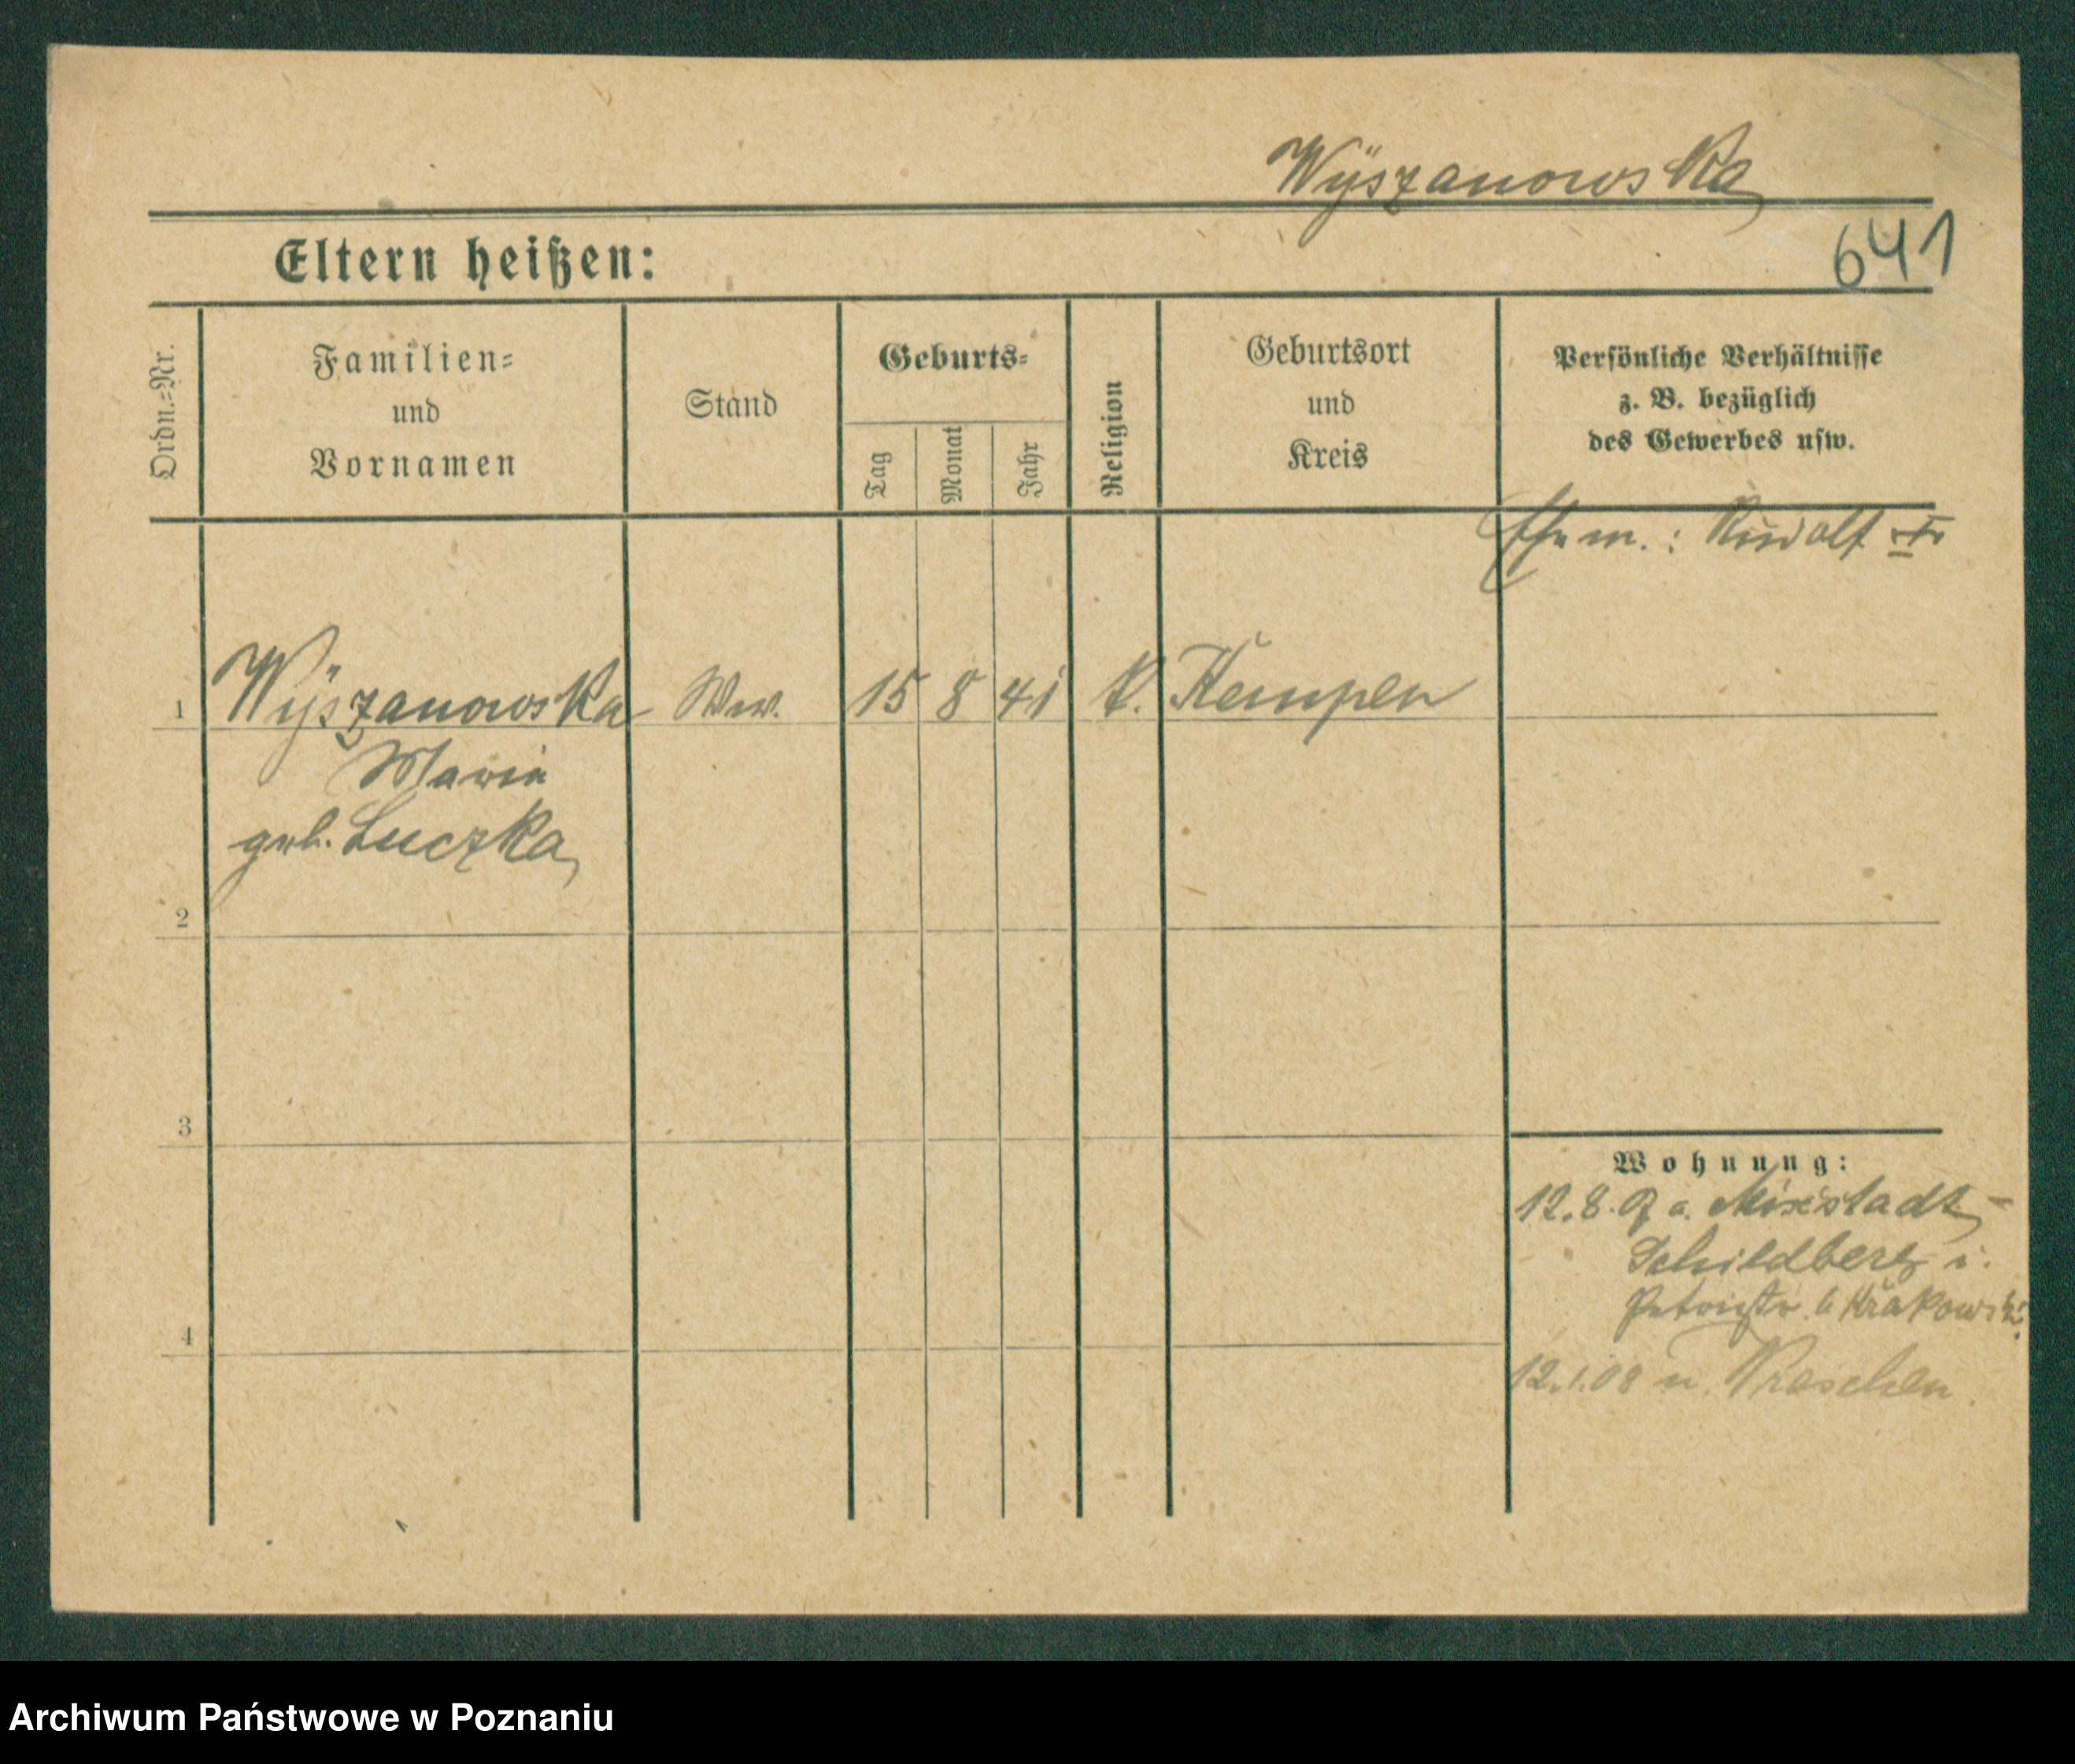 Wÿszanowska
Eltern heißen:
641
Ordn.-Nr.
Familien-
und
Vornamen
Stand
Geburts-
Tag
Monat
Jahr
Religion
Geburtsort
und
Kreis
Persönliche Verhältnisse
z. B. bezüglich
des Gewerbes usw.
Ehem.: Rudolf
1 Wÿszanowska Ww. 15 8 41 k. Kempen
Maria
geb. Luczka
2
3
4
Wohnung:
12.8. a. Mixstadt-
Schildberg i.
Petristr. b Krakowski
12.1.08 n. Pleschen
Archiwum Państwowe w Poznaniu